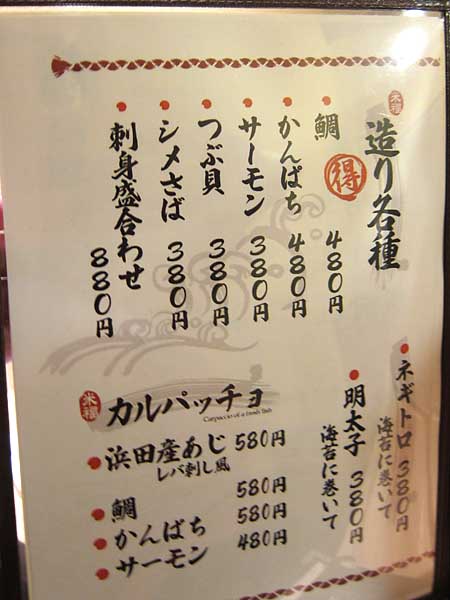 米福
造り各種
鯛 得 480円
かんぱち 480円
サーモン 380円
つぶ貝 380円
シメさば 380円
刺身盛合わせ 880円
ネギトロ 380円
海苔に巻いて
明太子 380円
海苔に巻いて
米福
カルパッチョ
Carpaccio of a fresh fish
浜田産あじ 580円
レバ刺し風
鯛 580円
かんぱち 580円
サーモン 480円